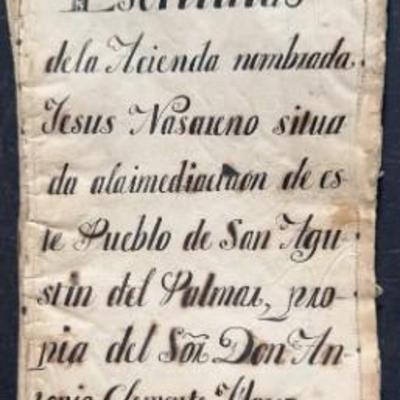 Escrituras
dela Acienda nombrada
Jesus Nasareno situa
da alaimediactaon de es-
te Pueblo de San Agu-
stin del Palmar, pro-
pia del Sõr. Don An-
tonio Clemente